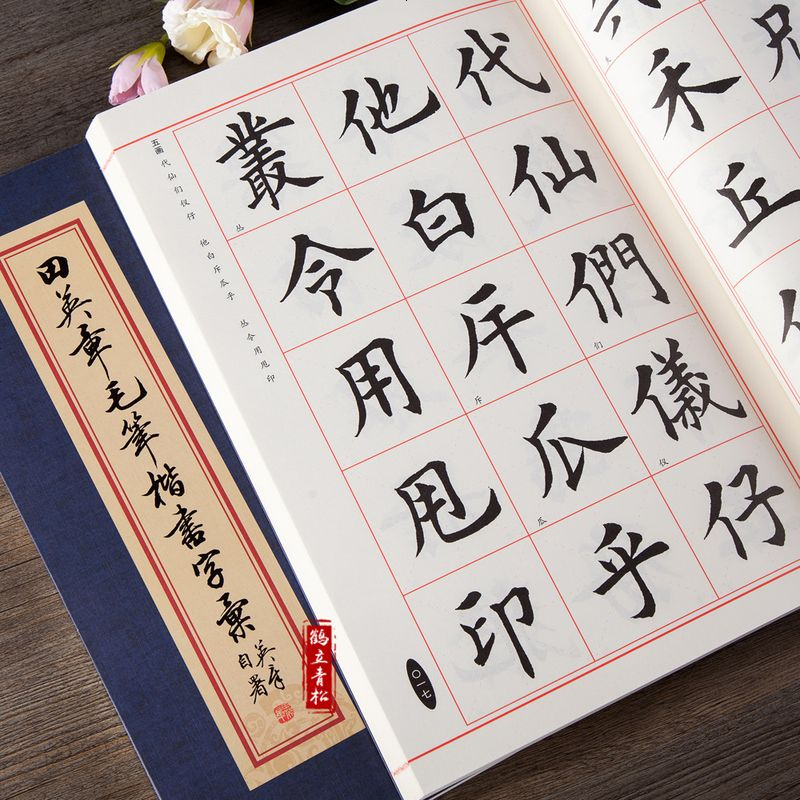 田英章毛筆楷書字彙
英章
自署
鹤立青松
五画 代仙们仪仔 他白斥瓜乎 丛令用甩印
代仙們儀仔
们
仪
他白斥瓜乎
斥
瓜
叢令用甩印
丛
〇一七
禾丘